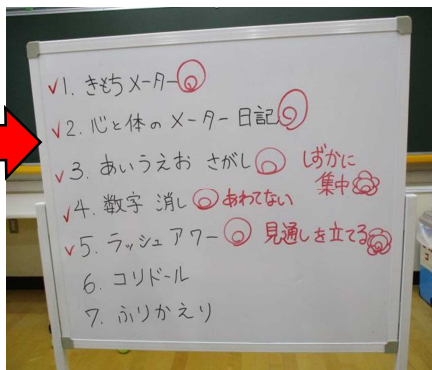 ✓1. きもちメーター
✓2. 心と体のメーター日記
✓3. あいうえおさがし しずかに
集中
✓4. 数字消し あわてない
✓5. ラッシュアワー 見通しを立てる
6. コリドール
7. ふりかえり